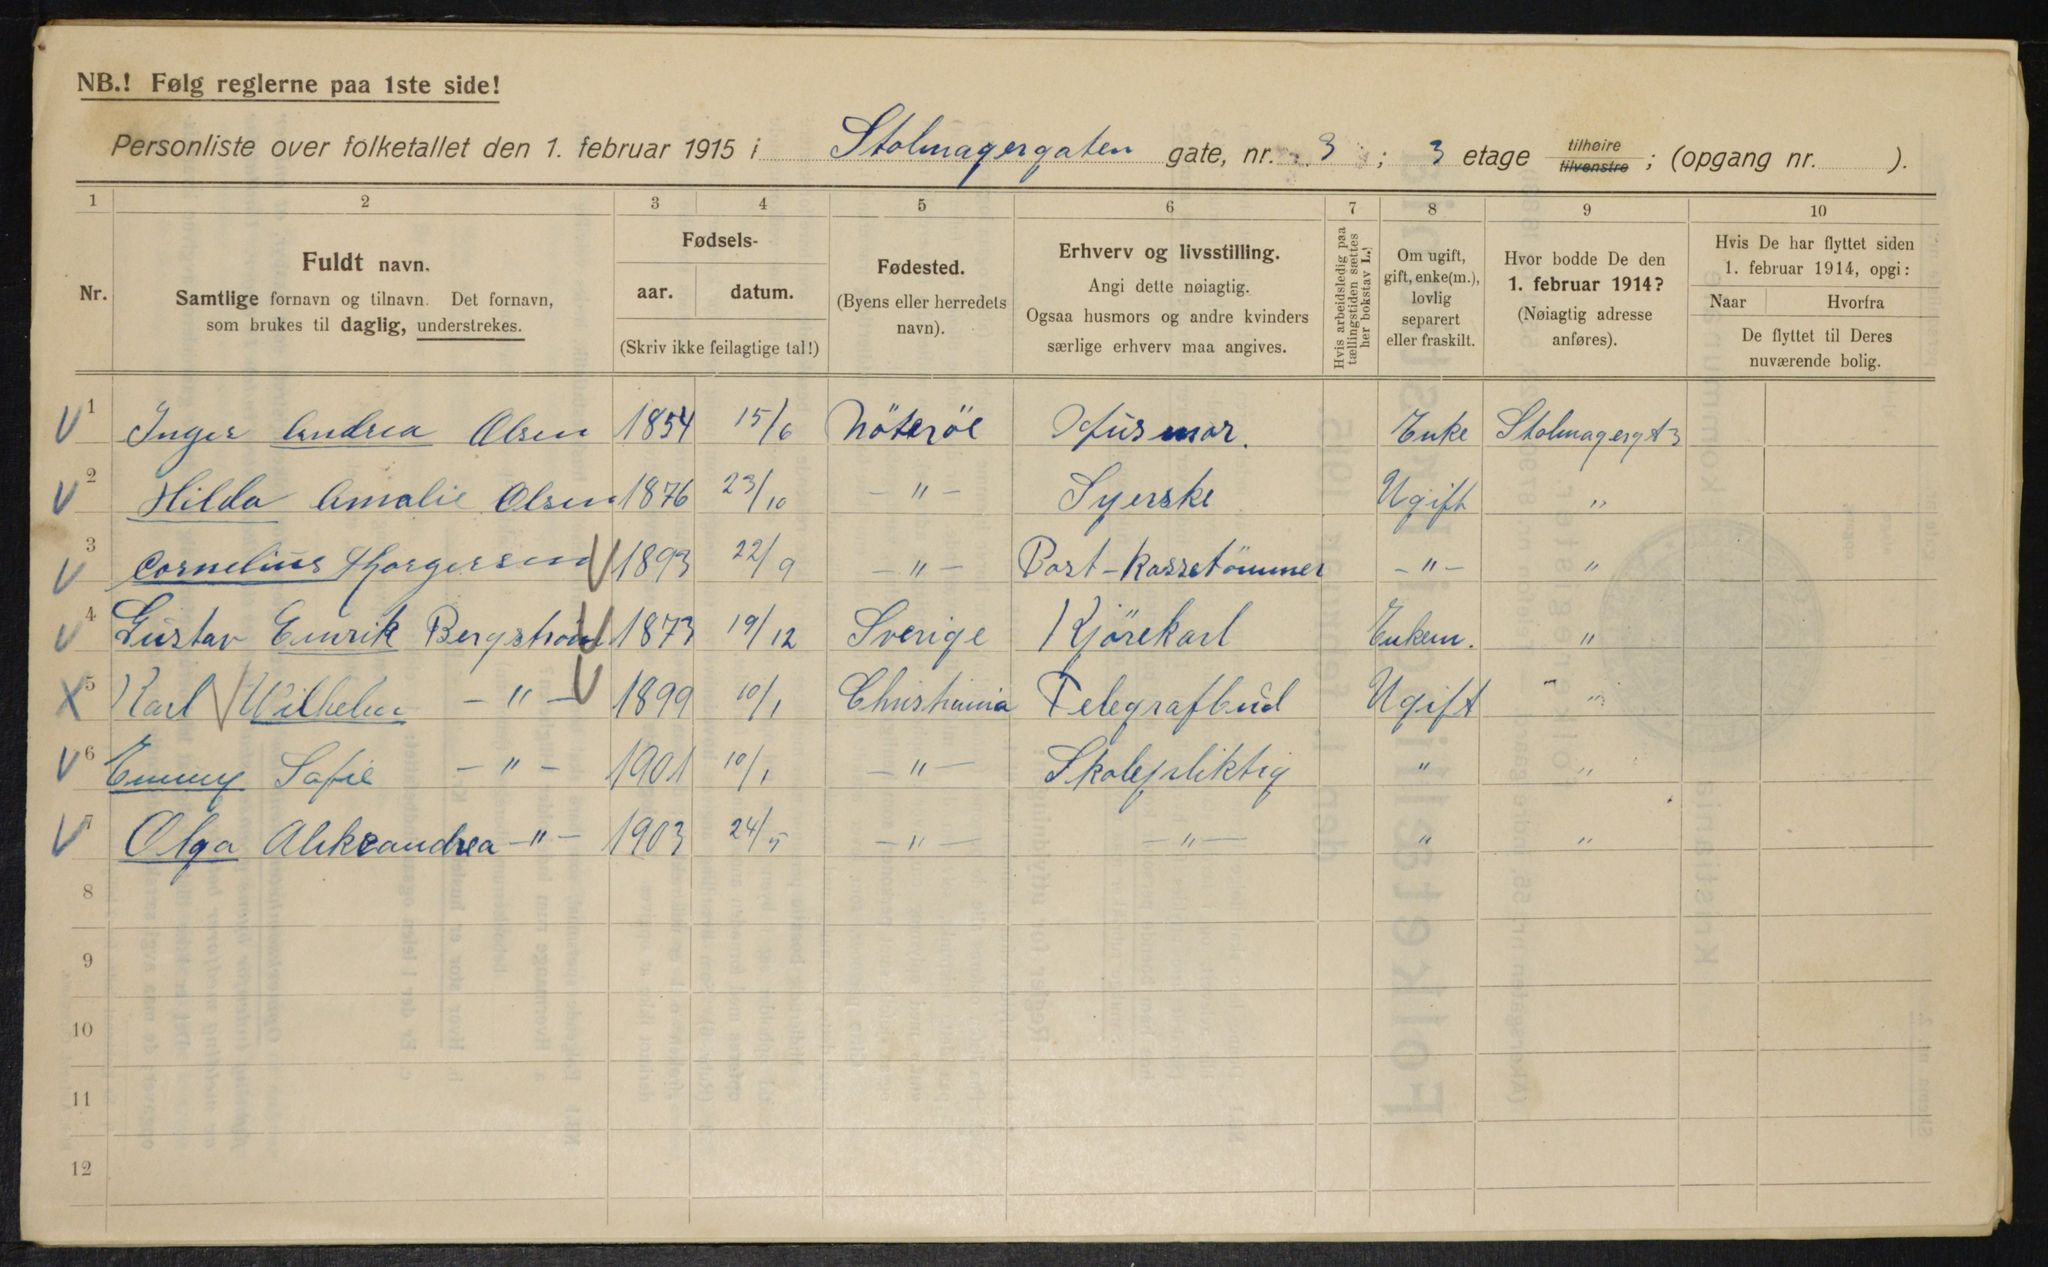 NB.! Følg reglerne paa 1ste side!
Personliste over folketallet den 1. februar 1915 i Stolmagergaten gate, nr. 3 ; 3 etage tilhøire tilvenstre ; (opgang nr. ).
1 2 3 4 5 6 7 8 9 10
Nr.
Fuldt navn.
Samtlige fornavn og tilnavn. Det fornavn,
som brukes til daglig, understrekes.
Fødsels-
aar. datum.
(Skriv ikke feilagtige tal!)
Fødested.
(Byens eller herredets
navn).
Erhverv og livsstilling.
Angi dette nøiagtig.
Ogsaa husmors og andre kvinders
særlige erhverv maa angives.
Hvis arbeidsledig paa
tællingstiden sættes
her bokstav L.
Om ugift,
gift, enke(m.),
lovlig
separert
eller fraskilt.
Hvor bodde De den
1. februar 1914?
(Nøiagtig adresse
anføres).
Hvis De har flyttet siden
1. februar 1914, opgi:
Naar Hvorfra
De flyttet til Deres
nuværende bolig.
1 Inger Andrea Olsen 1854 15/6 Nöteröe Husmor. Enke Stolmagergt 3
2 Hilda Amalie Olsen 1876 23/10 — " — Syerske Ugift "
3 Cornelius Thorgersen 1893 22/9 — " — Post-Kassetömmer — " — "
4 Gustav Emrik Bergström 1873 19/12 Sverige Kjörekarl Enkem. "
5 Karl Wilhelm — " — 1899 10/1 Christiania Telegrafbud Ugift " "
6 Emmy Sofie — " — 1901 10/1 — " — Skolepliktig " "
7 Olga Aleksandrea — " — 1903 24/5 — " — — " — " "
8
9
10
11
12